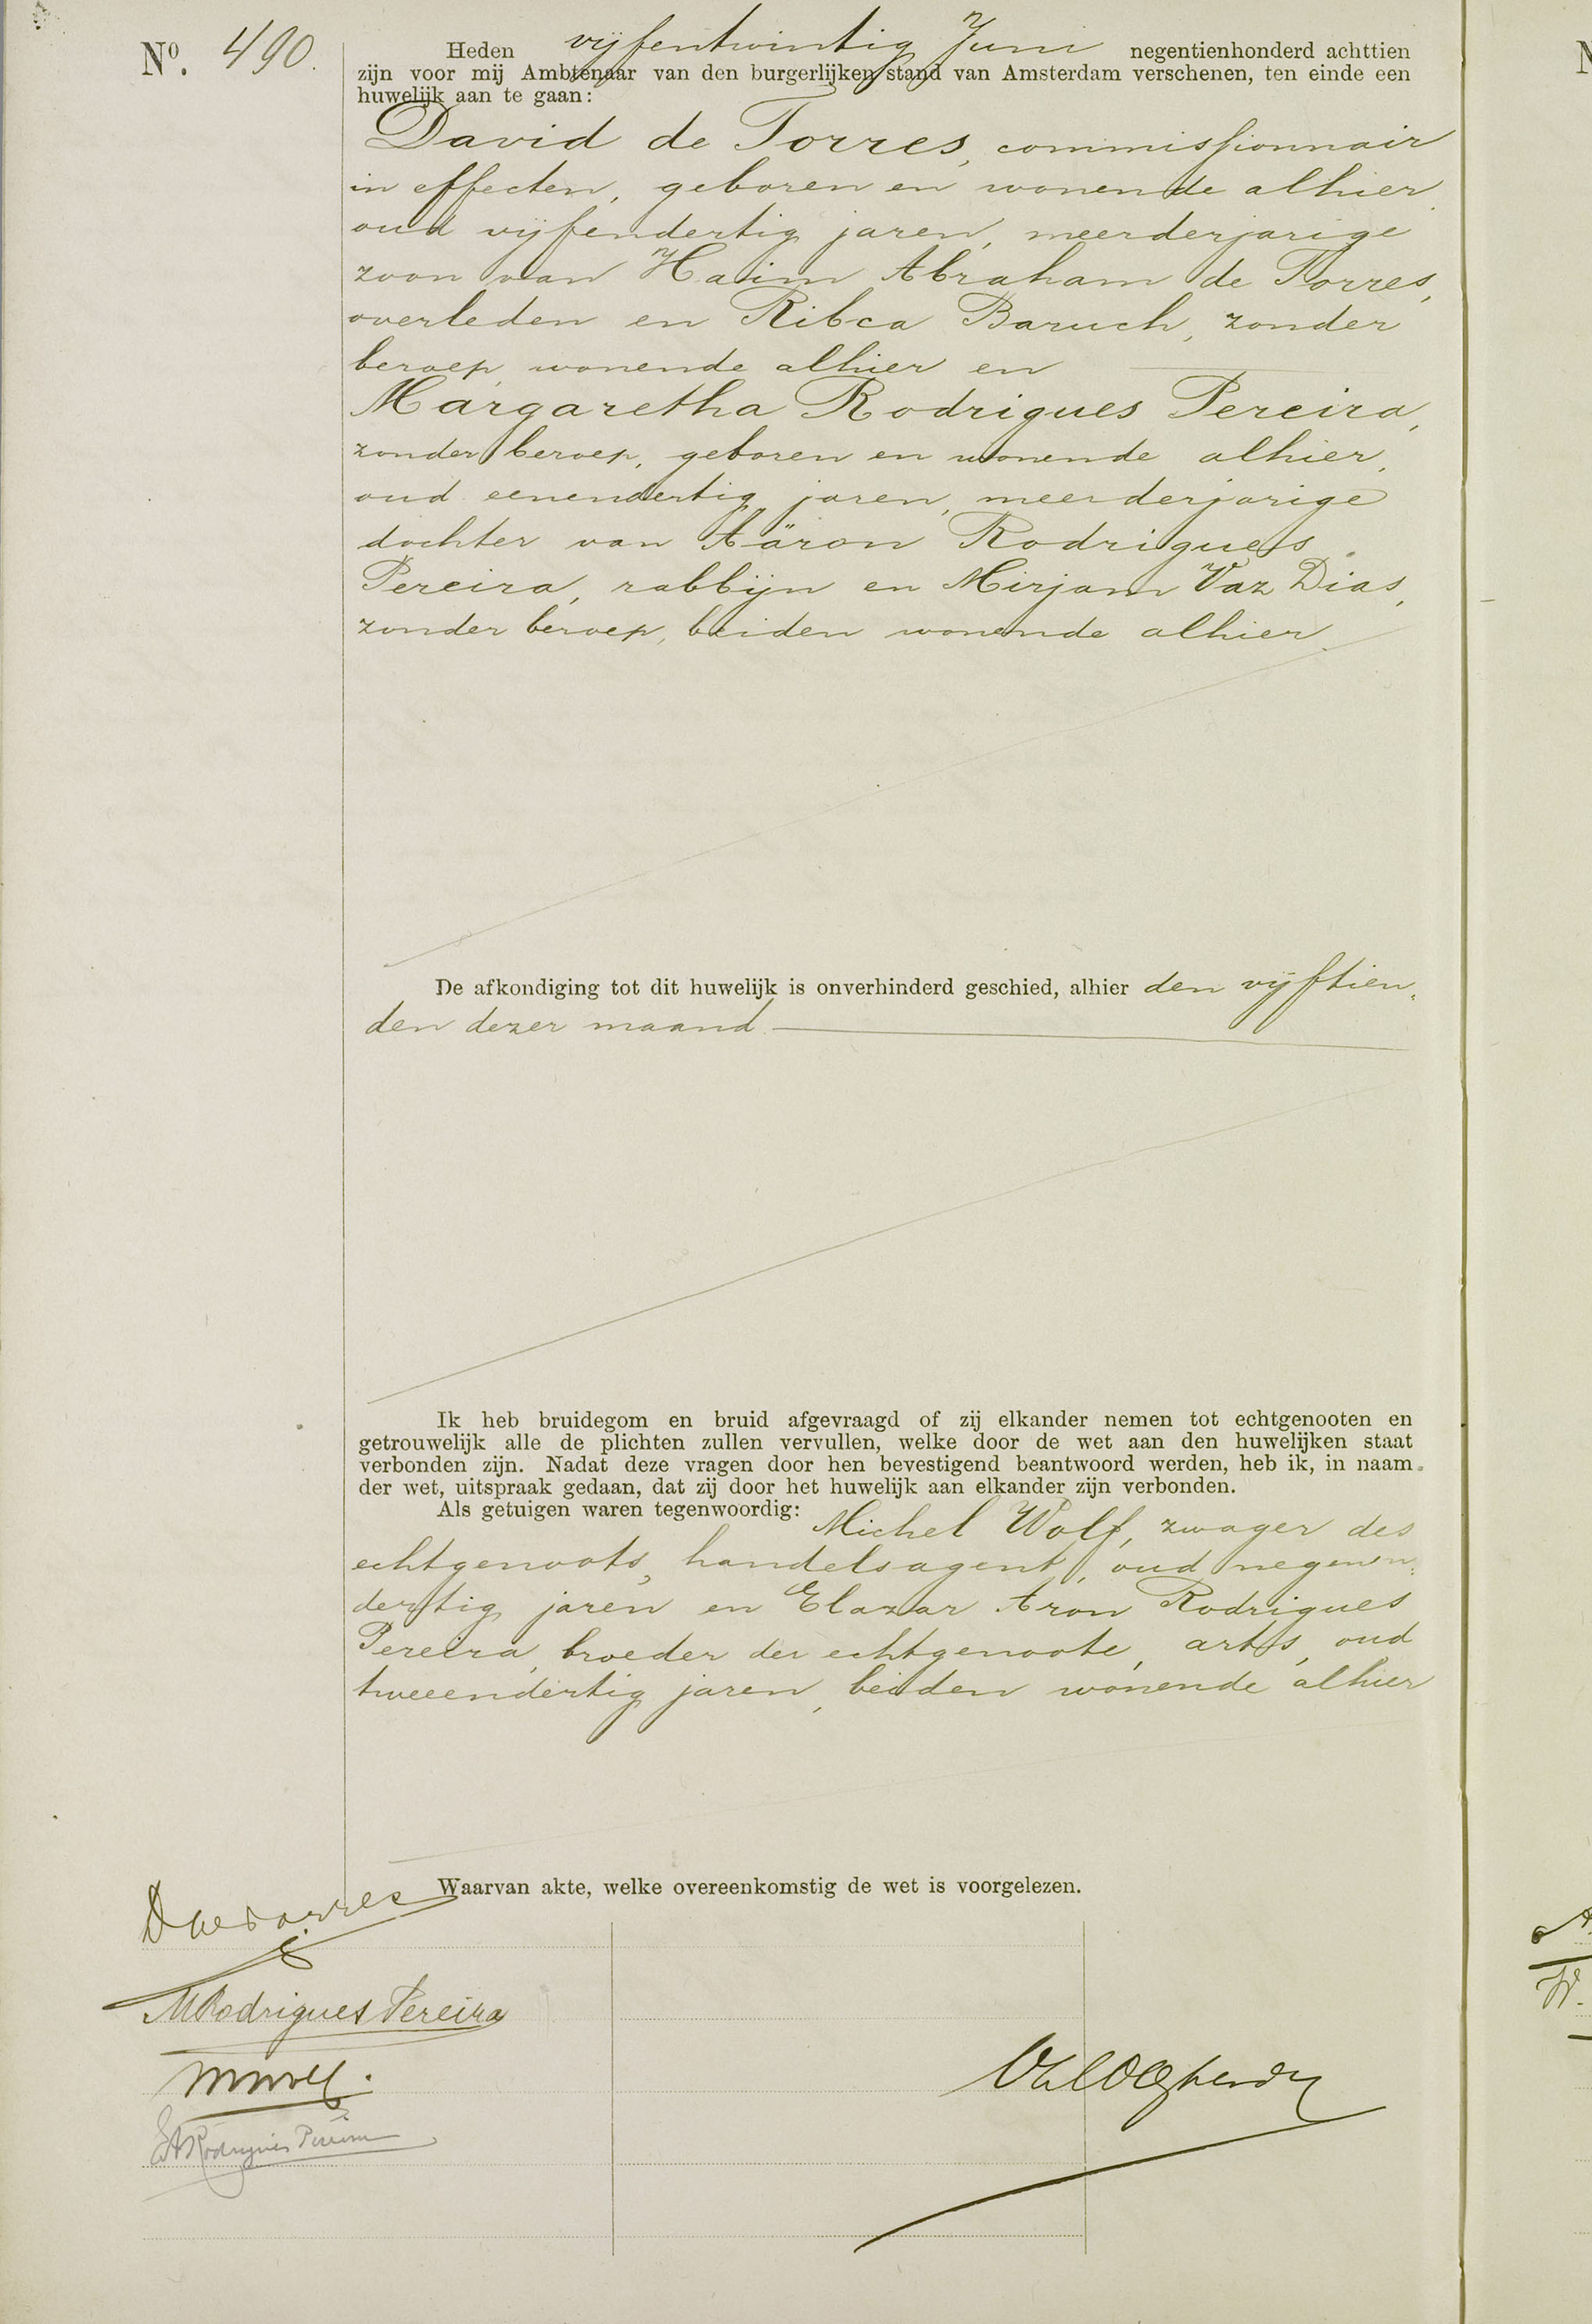 No. 490.
Heden vijfentwintig Juni negentienhonderd achttien
zijn voor mij Ambtenaar van den burgerlijken stand van Amsterdam verschenen, ten einde een
huwelijk aan te gaan:
David de Torres, commissionnair
in effecten, geboren en wonende alhier,
oud vijfendertig jaren, meerderjarige
zoon van Haim Abraham de Torres,
overleden en Ribca Baruch, zonder
beroep, wonende alhier en
Margaretha Rodrigues Pereira,
zonder beroep, geboren en wonende alhier,
oud eenendertig jaren, meerderjarige
dochter van Aäron Rodrigues
Pereira, rabbijn en Mirjam Vaz Dias,
zonder beroep, beiden wonende alhier.
De afkondiging tot dit huwelijk is onverhinderd geschied, alhier den vijftien-
den dezer maand
Ik heb bruidegom en bruid afgevraagd of zij elkander nemen tot echtgenooten en
getrouwelijk alle de plichten zullen vervullen, welke door de wet aan den huwelijken staat
verbonden zijn. Nadat deze vragen door hen bevestigend beantwoord werden, heb ik, in naam
der wet, uitspraak gedaan, dat zij door het huwelijk aan elkander zijn verbonden.
Als getuigen waren tegenwoordig: Michel Wolf, zwager des
echtgenoots, handelsagent, oud negenen-
dertig jaren en Elazar Aron Rodrigues
Pereira, broeder der echtgenoote, arts, oud
tweeendertig jaren, beiden wonende alhier
Waarvan akte, welke overeenkomstig de wet is voorgelezen.
D de Torres
M Rodrigues Pereira
M Wolf.
EA Rodrigues Pereira